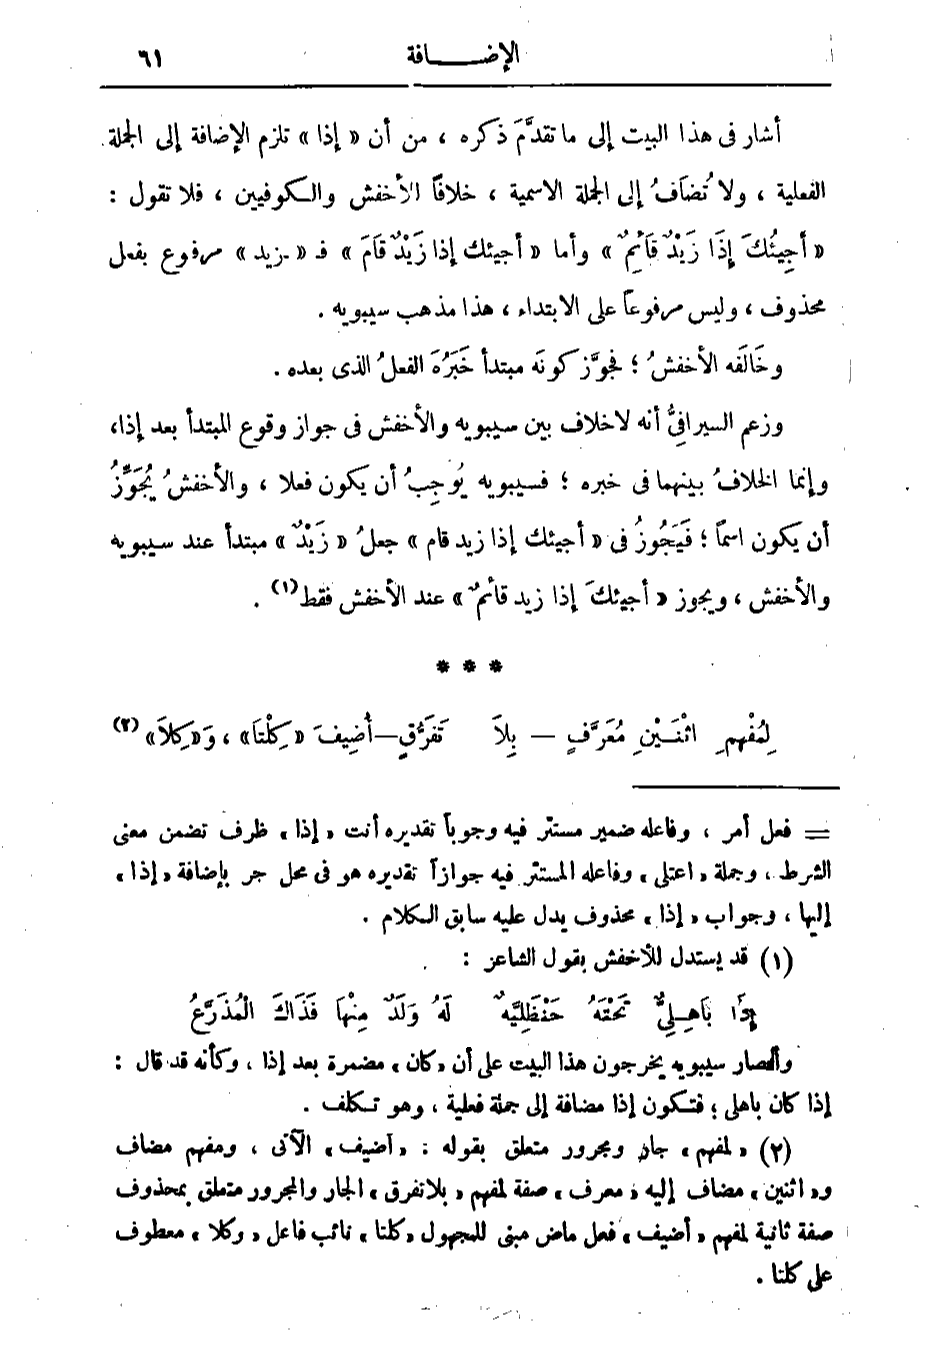 الإضـــــافة ٦١
أشار فى هذا البيت إلى ما تقدَّمَ ذكره ، من أن « إذا » تلزم الإضافة إلى الجملة
الفعلية ، ولا تُضَافُ إلى الجملة الاسمية ، خلافاً لأخفش والكوفيين ، فلا تقول :
« أجِيئُكَ إِذَا زَيْدٌ قَائِمٌ » وأما « أجيئك إذا زَيْدٌ قَامَ » فـ « ـزيد » مرفوع بفعل
محذوف ، وليس مرفوعاً على الابتداء ، هذا مذهب سيبويه .
وخَالَفَه الأخفشُ ؛ فجوَّز كونَه مبتدأ خَبَرُهَ الفعلُ الذى بعده .
وزعم السيرافىُّ أنه لاخلاف بين سيبويه والأخفش فى جواز وقوع المبتدأ بعد إذا،
وإنما الخلافُ بينهما فى خبره ؛ فسيبويه يُوجِبُ أن يكون فعلا ، والأخفشُ يُجَوِّزُ
أن يكون اسمًا ؛ فَيَجُوزُ فى « أجيئك إذا زيد قام » جعلُ « زَيْدٌ » مبتدأ عند سيبويه
والأخفش ، ويجوز « أجيئكَ إذا زيد قائمٌ » عند الأخفش فقط(١) .
* * *
لِمُفْهِمِ اثْنَيْنِ مُعَرَّفٍ – بِلاَ تَفَرُّقٍ – أُضِيفَ « كِلْتَا» ، وَ« كِلاَ » (٢)
= فعل أمر ، وفاعله ضمير مستتر فيه وجوباً تقديره أنت « إذا » ظرف تضمن معنى
الشرط ، وجملة « اعتلى » وفاعله المستتر فيه جوازاً تقديره هو فى محل جر بإضافة « إذا »
إليها ، وجواب « إذا » محذوف يدل عليه سابق الكلام .
(١) قد يستدل للأخفش بقول الشاعر :
إِذَا بَاهِلِىٌّ تَحْتَهُ حَنْظَلِيَّةٌ لَهُ وَلَدٌ مِنْهَا فَذَاكَ الْمُذَرَّعُ
وأنصار سيبويه يخرجون هذا البيت على أن « كان » مضمرة بعد إذا ، وكأنه قد قال :
إذا كان باهلى ؛ فتكون إذا مضافة إلى جملة فعلية ، وهو تكلف .
(٢) « لمفهم » جار ومجرور متعلق بقوله : « أضيف » الآتى ، ومفهم مضاف
و« اثنين » مضاف إليه « معرف » صفة لمفهم « بلا تفرق » الجار والمجرور متعلق بمحذوف
صفة ثانية لمفهم « أضيف » فعل ماض مبنى للمجهول « كلتا » نائب فاعل « وكلا » معطوف
على كلتا .